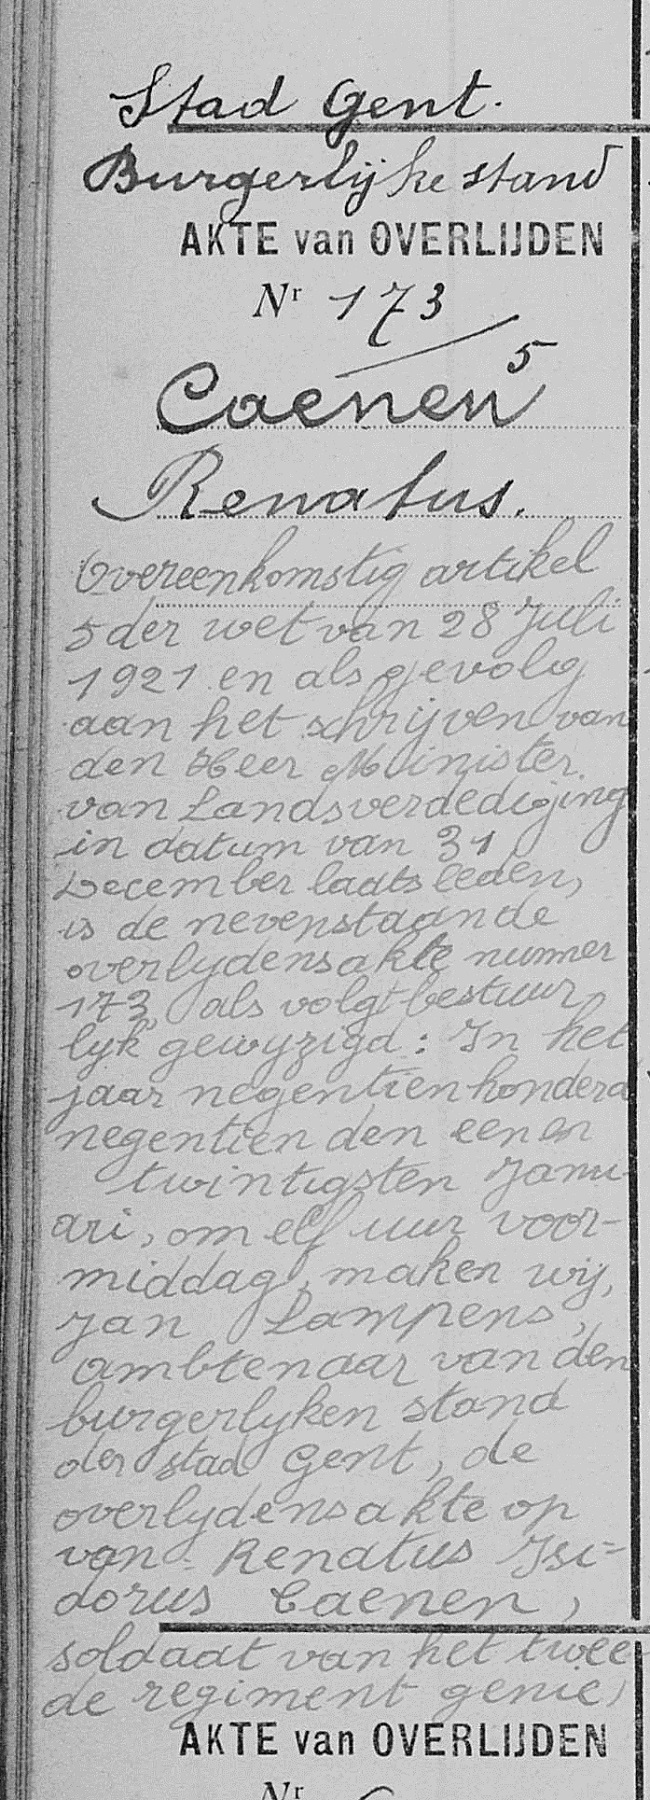 Stad Gent.
Burgerlijke stand
AKTE van OVERLIJDEN
Nr 173
5
Caenen
Renatus.
Overeenkomstig artikel
5 der wet van 28 Juli
1921 en als gevolg
aan het schrijven van
den Heer Minister
van Landsverdediging
in datum van 31
December laatsleden,
is de nevenstaande
overlydensakte nummer
173, als volgt bestuur
lyk gewyzigd: In het
jaar negentienhonderd
negentien den een en
twintigsten Janu-
ari, om elf uur voor-
middag, maken wij,
Jan Lampens,
ambtenaar van den
burgerlyken stand
der stad Gent, de
overlydensakte op
van Renatus Isi=
dorus Caenen,
soldaat van het twee
de regiment genie,
AKTE van OVERLIJDEN
Nr